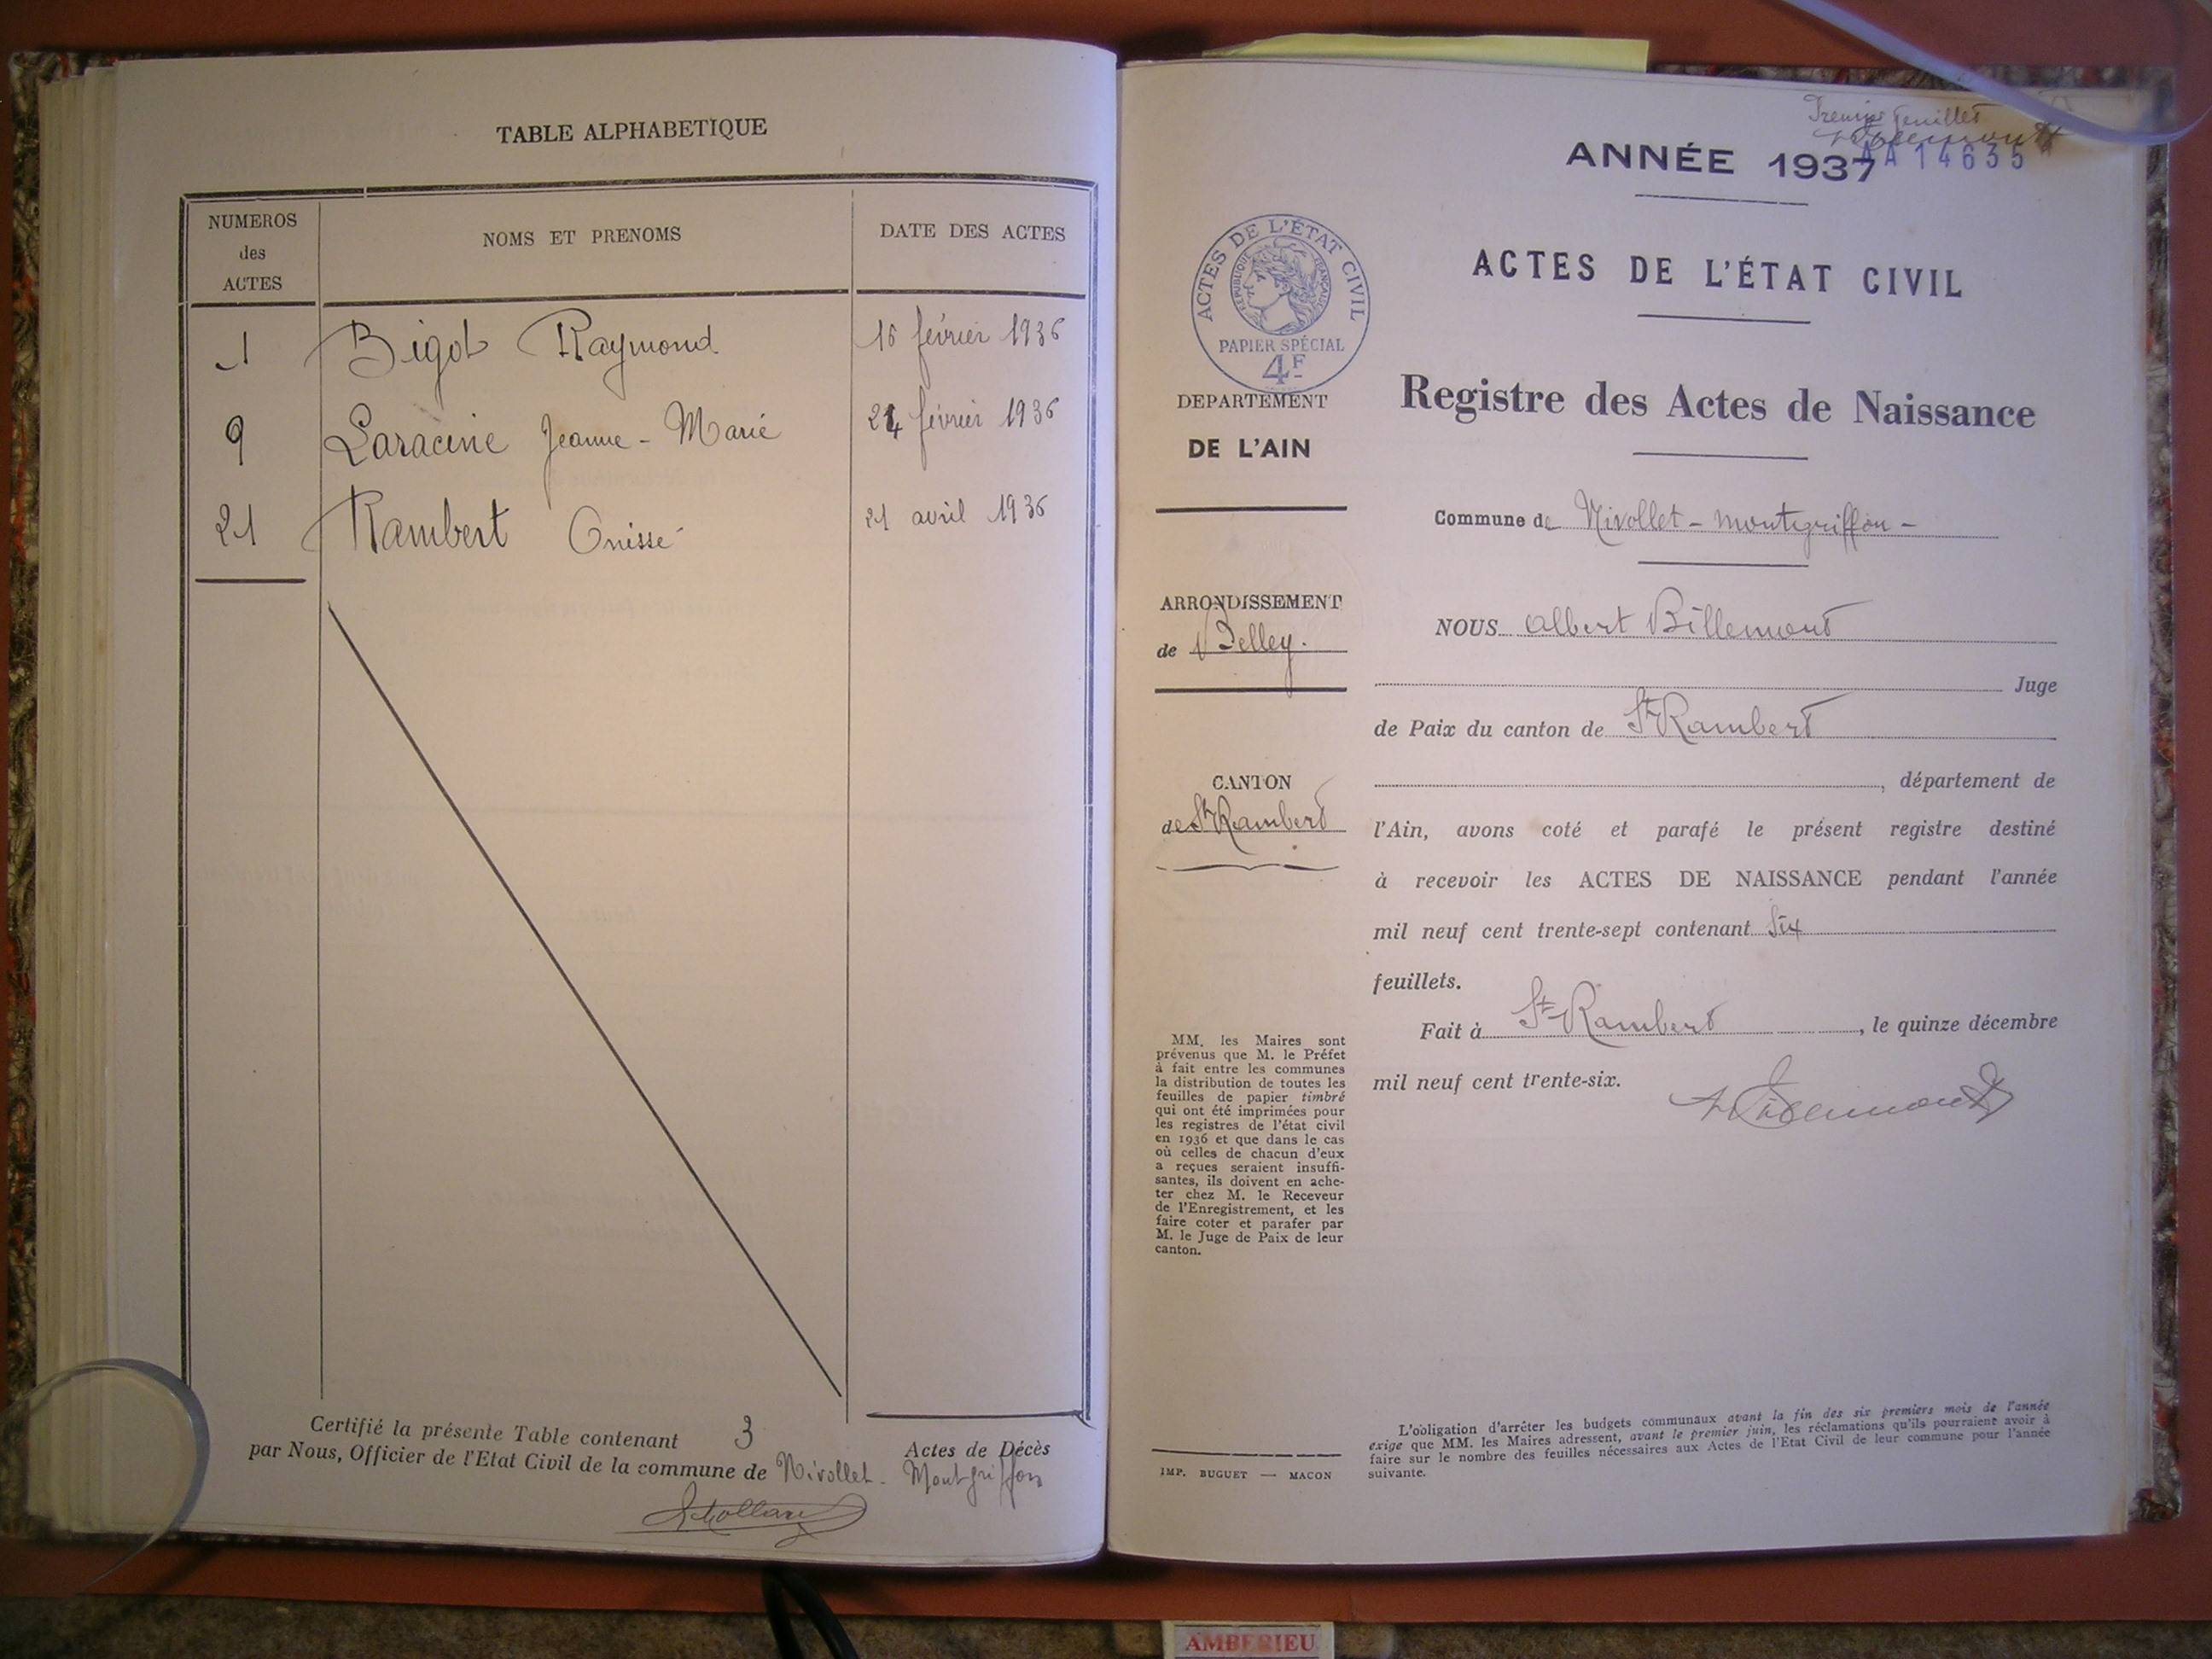 TABLE ALPHABETIQUE
NUMEROS
des
ACTES
NOMS ET PRENOMS
DATE DES ACTES
1 Bigot Raymond 16 février 1936
9 Laracine Jeanne - Marie 24 février 1936
21 Rambert Onisse 21 avril 1936
Certifié la présente Table contenant 3 Actes de Décès
par Nous, Officier de l'Etat Civil de la commune de Nivollet - Montgriffon
Premier feuillet
AA 14635
ANNÉE 1937
ACTES DE L'ÉTAT CIVIL
Registre des Actes de Naissance
Commune de Nivollet - Montgriffon -
NOUS Albert Billemont
Juge
de Paix du canton de St Rambert
, département de
l'Ain, avons coté et parafé le présent registre destiné
à recevoir les ACTES DE NAISSANCE pendant l'année
mil neuf cent trente-sept contenant Six
feuillets.
Fait à St Rambert, le quinze décembre
mil neuf cent trente-six.
ACTES DE L'ÉTAT CIVIL
RÉPUBLIQUE FRANÇAISE
PAPIER SPÉCIAL
4F
DEPARTEMENT
DE L'AIN
ARRONDISSEMENT
de Belley.
CANTON
de St Rambert
MM. les Maires sont
prévenus que M. le Préfet
à fait entre les communes
la distribution de toutes les
feuilles de papier timbré
qui ont été imprimées pour
les registres de l'état civil
en 1936 et que dans le cas
où celles de chacun d'eux
a reçues seraient insuffi-
santes, ils doivent en ache-
ter chez M. le Receveur
de l'Enregistrement, et les
faire coter et parafer par
M. le Juge de Paix de leur
canton.
IMP. BUGUET — MACON
L'obligation d'arrêter les budgets communaux avant la fin des six premiers mois de l'année
exige que MM. les Maires adressent, avant le premier juin, les réclamations qu'ils pourraient avoir à
faire sur le nombre des feuilles nécessaires aux Actes de l'Etat Civil de leur commune pour l'année
suivante.
AMBERIEU